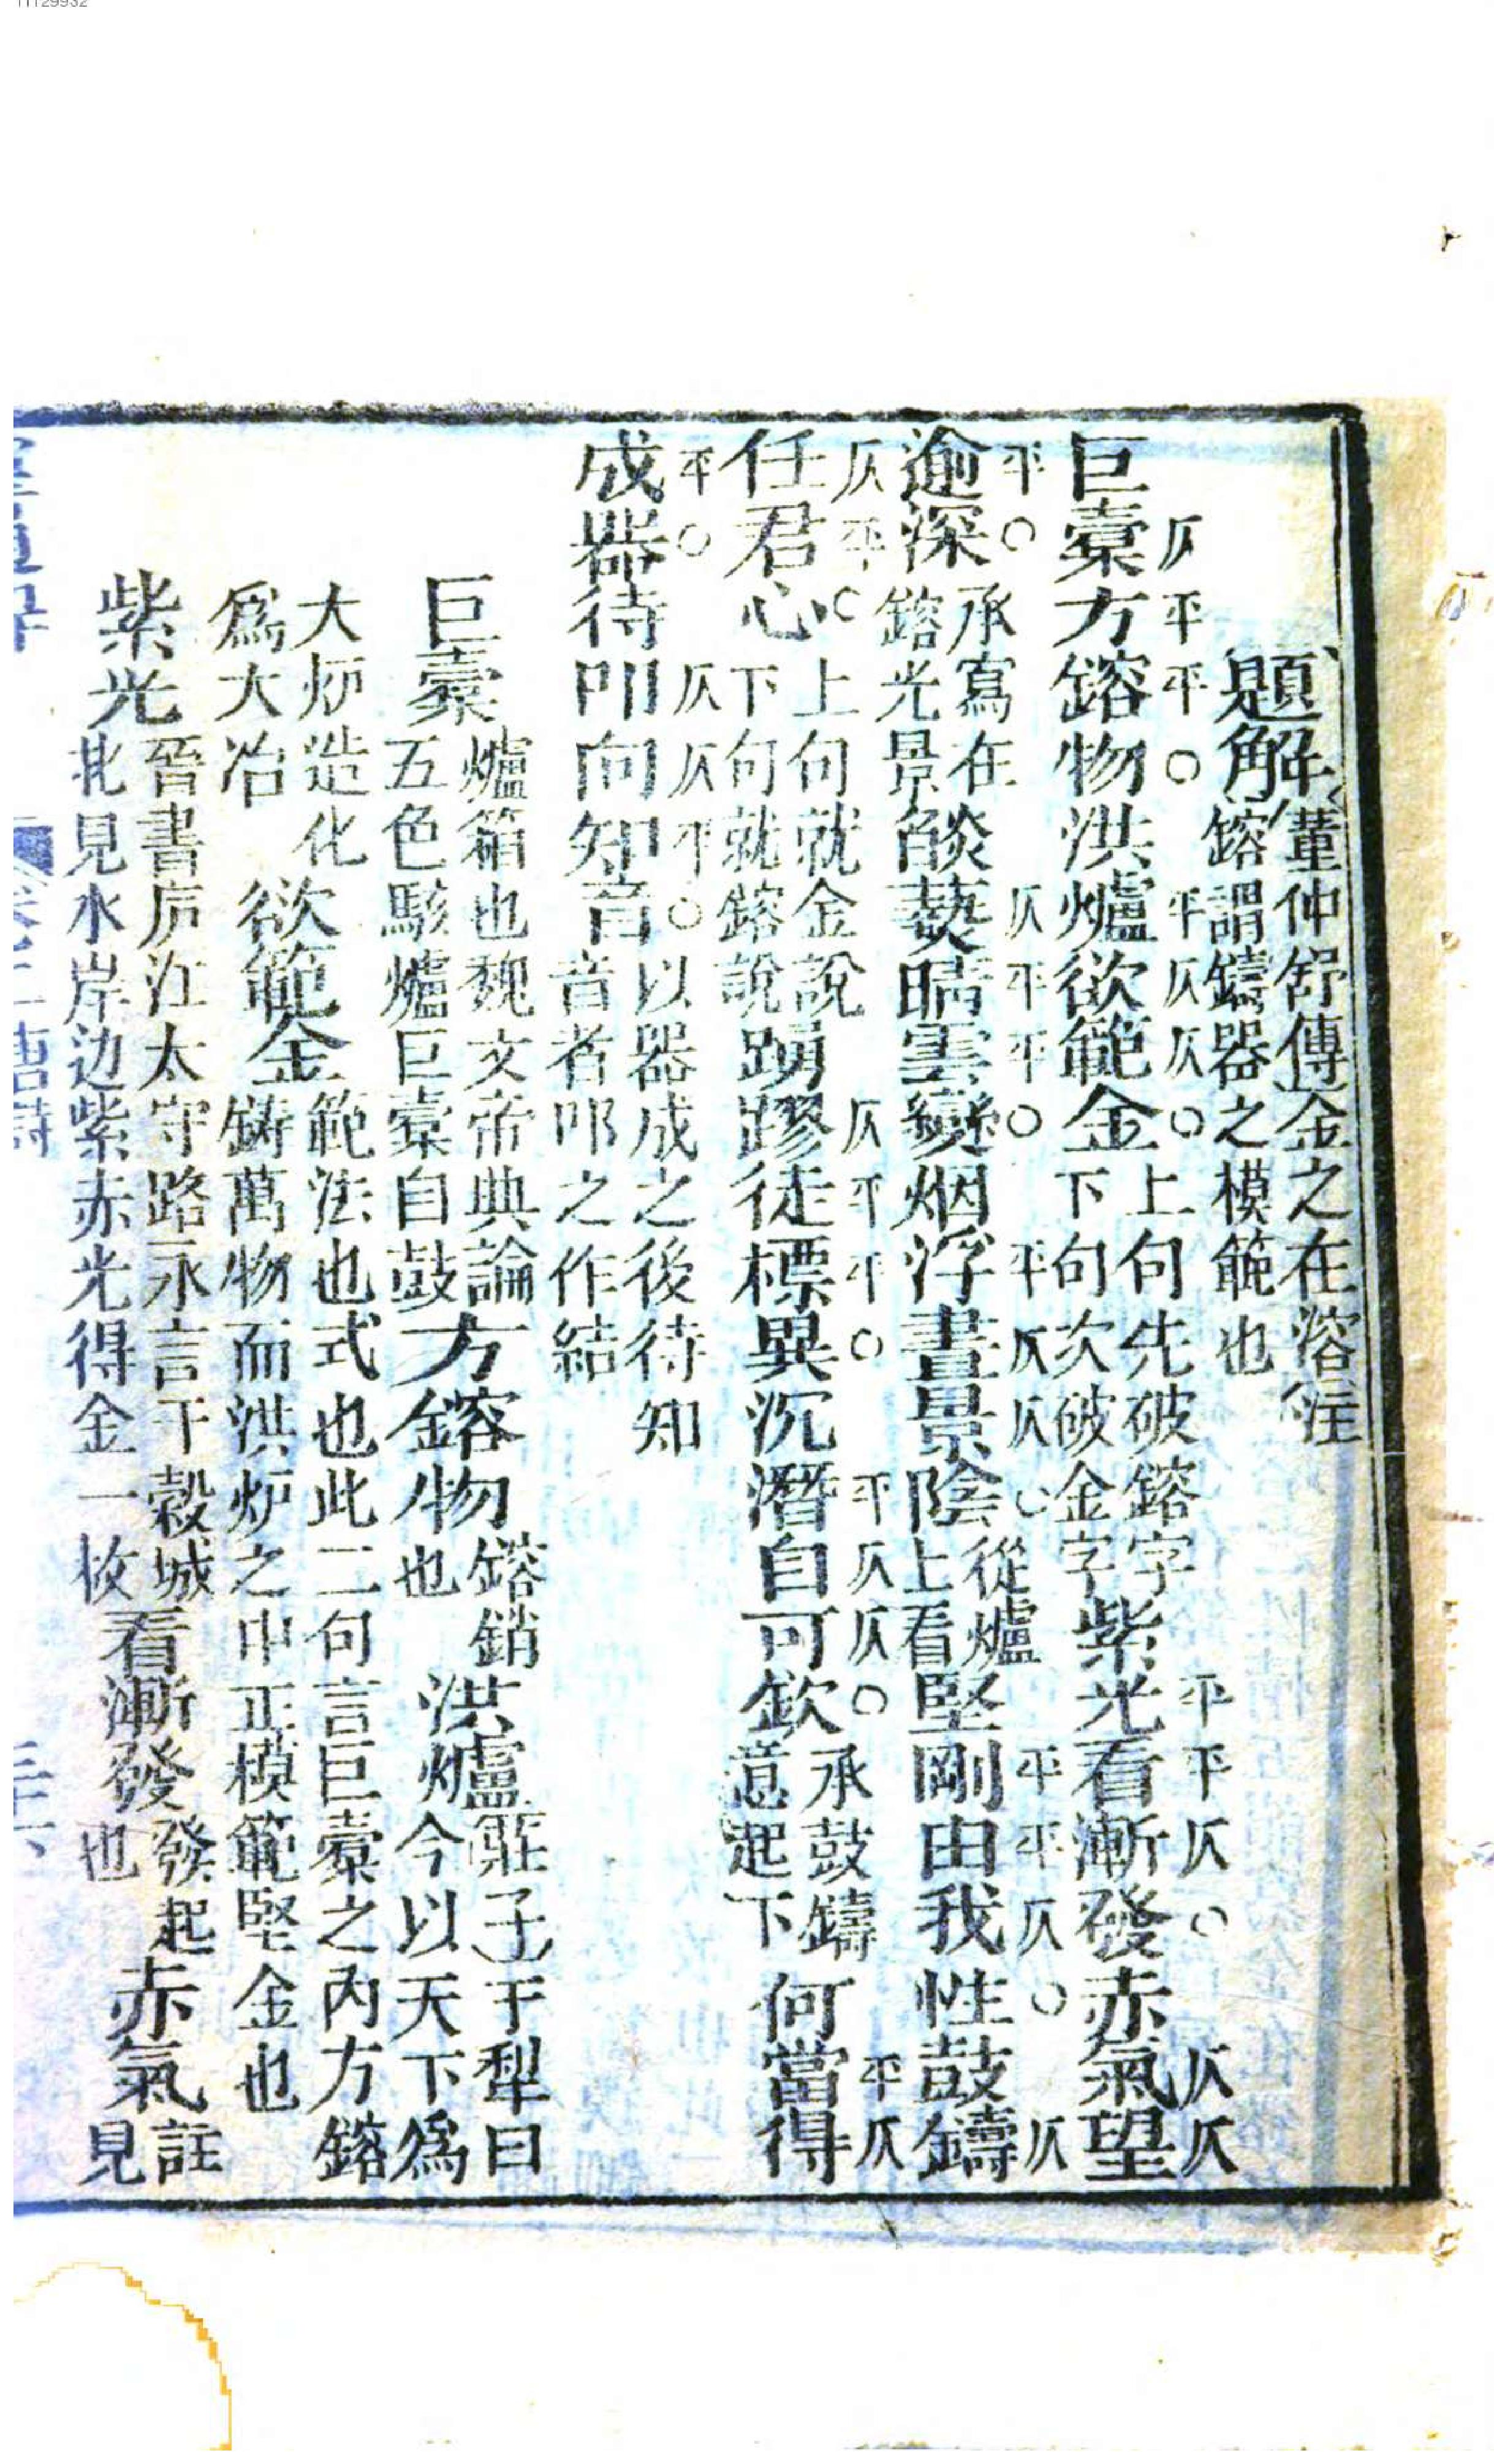 題解董仲舒傳金之在溶注
鎔謂鑄器之模範也
仄平平○平仄仄○平平仄○仄仄
巨橐方鎔物洪爐欲範金上句先破鎔字下句次破金字紫光看漸發赤氣望
平○仄平平○平仄仄○平平仄○仄
逾深承寫在鎔光景燄爇晴雲變烟浮晝景陰從爐上看堅剛由我性鼓鑄
仄平○仄平平○平仄仄○平仄
任君心上句就金說下句就鎔說踴蹘徒標異沉潛自可欽承鼓鑄意起下何當得
平○仄仄平○
成器待叩向知音以器成之後待知音者叩之作結
巨橐爐箱也魏文帝典論五色駭爐巨橐自鼓方鎔物鎔銷也洪爐莊子于犁曰今以天下爲
大炉造化爲大冶欲範金範法也式也此二句言巨橐之內方鎔鑄萬物而洪炉之中正模範堅金也
紫光晉書庐江太守路永言于穀城北見水岸边紫赤光得金一枚看漸發發起也赤氣註見